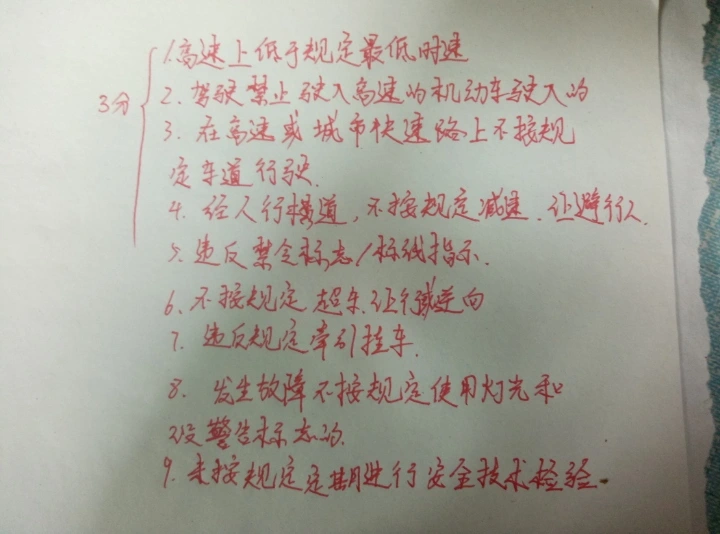 1.高速上低于规定最低时速
3分
2.驾驶禁止驶入高速的机动车驶入的
3.在高速或城市快速路上不按规
定车道行驶.
4.经人行横道,不按规定减速.让避行人.
5.违反禁令标志/标线指示.
6.不按规定超车.让行或逆向
7.违反规定牵引挂车.
8.发生故障不按规定使用灯光和
设警告标志的.
9.未按规定定期进行安全技术检验.